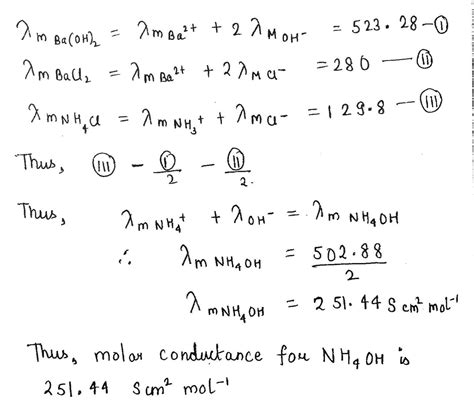 λm Ba(OH)₂ = λm Ba²⁺ + 2 λM OH⁻ = 523.28 – ⓘ
λm BaCl₂ = λm Ba²⁺ + 2 λM Cl⁻ = 280 — ⓘⓘ
λm NH₄Cl = λm NH₃⁺ + λM Cl⁻ = 129.8 — ⓘⓘⓘ
Thus, (III) – (I)/2 – (II)/2.
Thus, λm NH₄⁺ + λOH⁻ = λm NH₄OH
∴ λm NH₄OH = 502.88/2
λm NH₄OH = 251.44 S cm² mol⁻¹
Thus, molar conductance for NH₄OH is
251.44 S cm² mol⁻¹